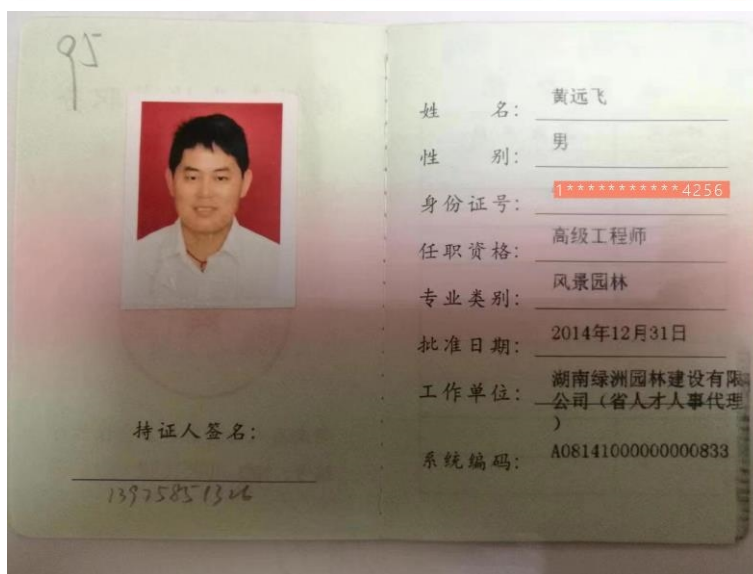 95
持证人签名：
13975851326
姓 名： 黄远飞
性 别： 男
身份证号： 1***********4256
任职资格： 高级工程师
专业类别： 风景园林
批准日期： 2014年12月31日
工作单位： 湖南绿洲园林建设有限
公司（省人才人事代理
）
系统编码： A08141000000000833